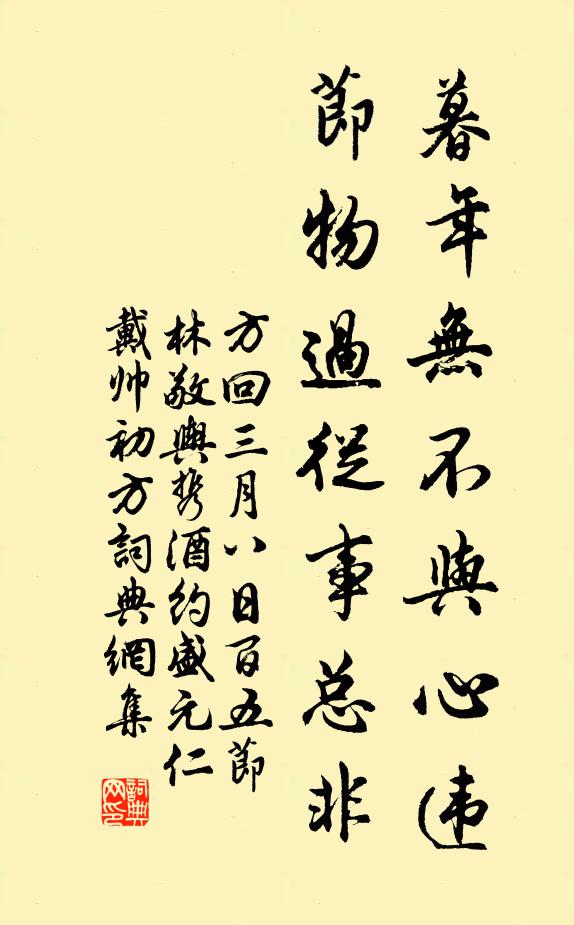 暮年無不與心违
節物過從事总非
方回三月八日百五節
林敬與携酒約盛元仁
戴帅初方詞典網集
詞典网印